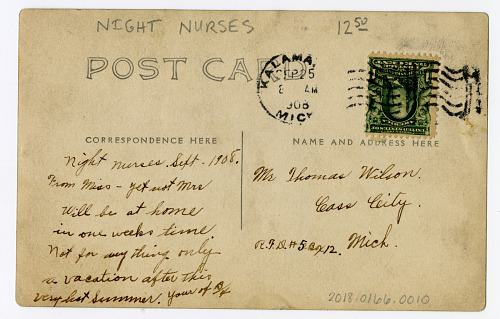 NIGHT NURSES
12 50
POST CARD
KALAMA
SEP 25
8 AM
1908
MICH
CORRESPONDENCE HERE
NAME AND ADDRESS HERE
Night nurses. Sept. 1908.
From Miss - yet not Mrs
Will be at home
in one weeks time.
Not for anything only
a vacation after this
very hot Summer. Your of
Mr Thomas Wilson.
Cass City.
R.F.D. #5 Bx 12. Mich.
2018.0166.0010